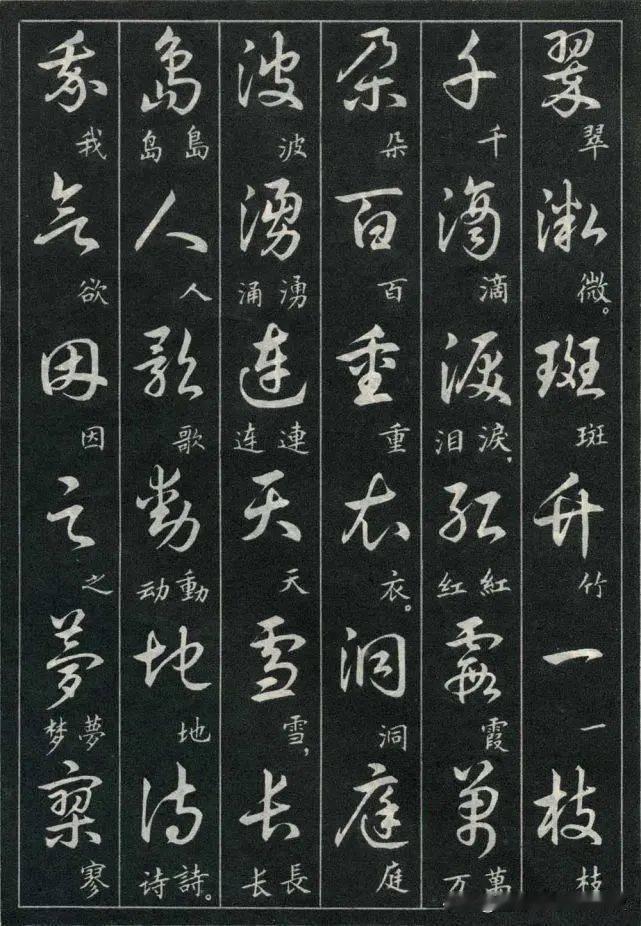 翠微斑竹一枝
翠微。斑竹一枝
千滴淚紅霞萬
千滴淚，泪紅红霞萬万
朵百重衣洞庭
朵百重衣。洞庭
波湧連天雪長
波湧涌連连天雪，長长
島人歌動地詩
島岛人歌動动地詩。诗
我欲因之夢寥
我欲因之夢梦寥